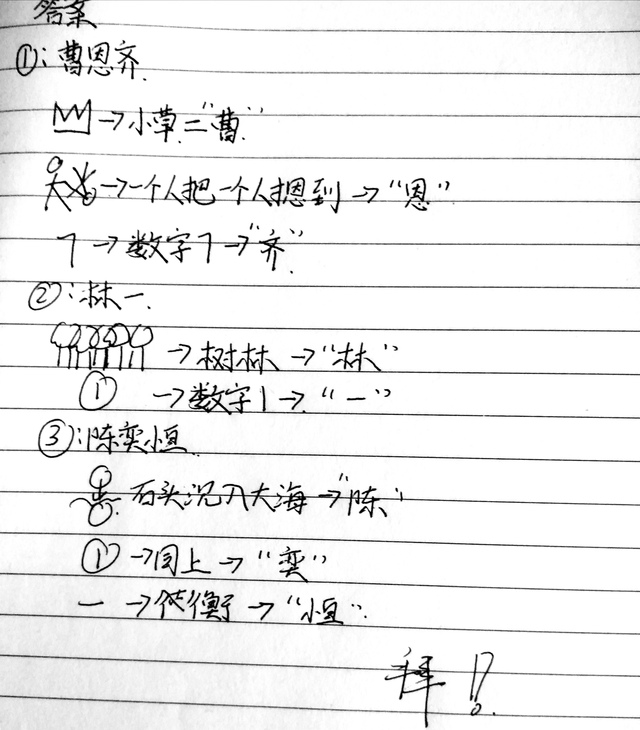 答案
①:曹恩齐.
→小草="曹"
→一个人把一个人摁到→"恩"
7→数字7→"齐"
②:林一.
→树林→"林"
①→数字1→"一"
③:陈奕恒
石头沉入大海→"陈"
①→同上→"奕"
一→横→"恒".
拜!?